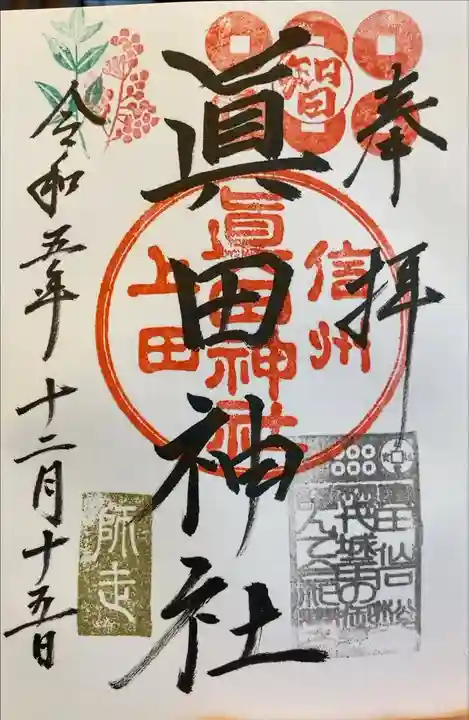 奉拝
智
信州
眞田神社
上田
眞田神社
令和五年十二月十五日
師走